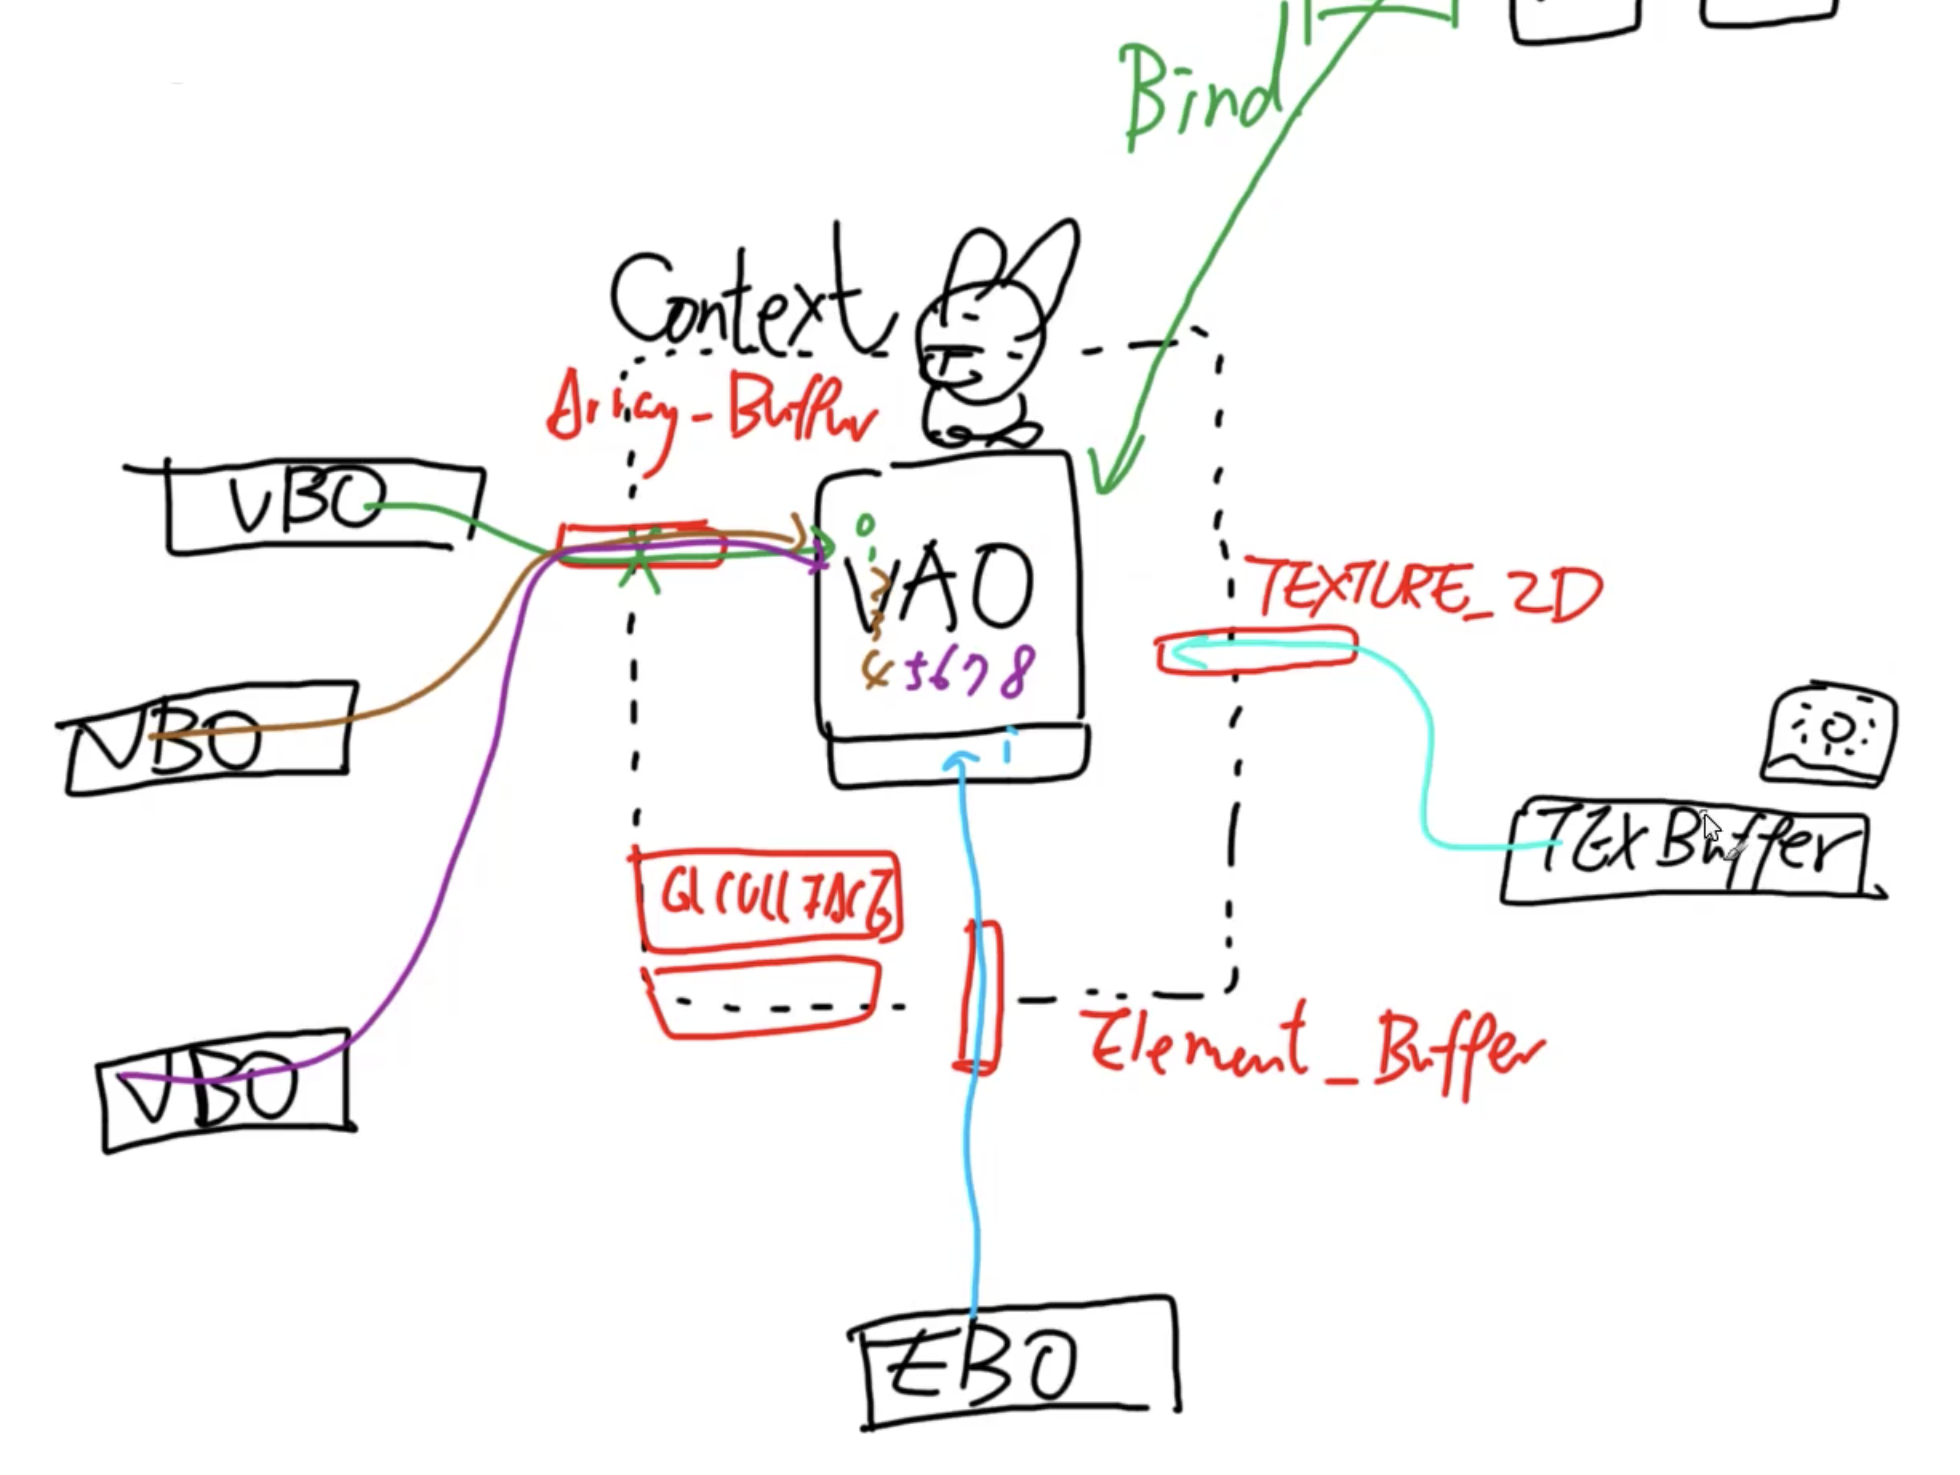 Bind
Context
Array_Buffer
VBO
0
1
2
3
VAO
4 5 6 7 8
TEXTURE_2D
VBO
TEX Buffer
GL CULL FACE
VBO
Element_Buffer
EBO